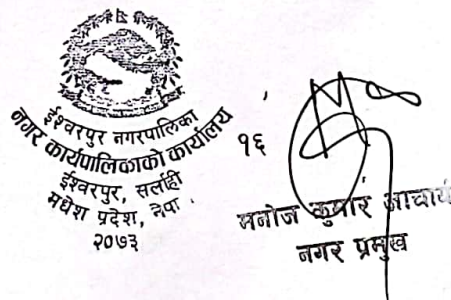 ईश्वरपुर नगरपालिका
नगर कार्यपालिकाको कार्यालय
ईश्वरपुर, सर्लाही
मधेश प्रदेश, नेपा
२०७३
१६
मनोज कुमार आचार्य
नगर प्रमुख